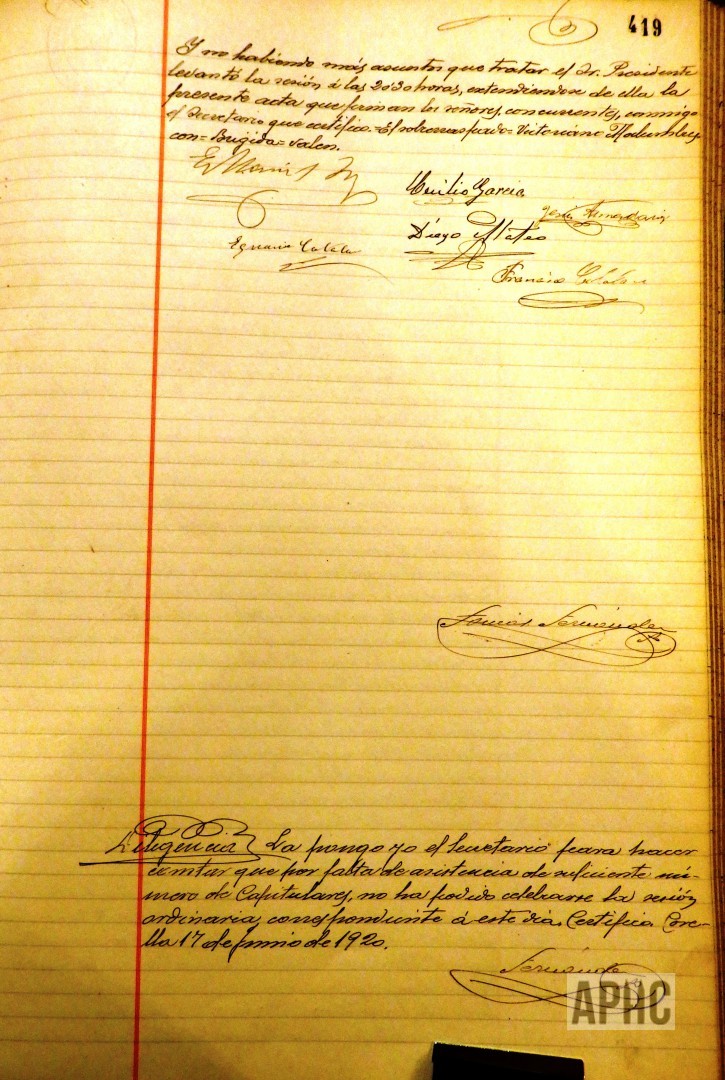 419
Y no habiendo más asuntos que tratar el Sr. Presidente
levantó la sesión á las 20'30 horas, extendiendose de ella la
presente acta que firman los señores concurrentes, conmigo
el Secretario que certifico.=El sobrerraspado=Victoriano
con=Brigida=valen.
Emilio Garcia
Jesús
Diego Mateo
Ignacio Catalan
Francisco Catalan
Tomás Fernández
Diligencia La pongo yo el Secretario para hacer
constar que por falta de asistencia de suficiente nú-
mero de Capitulares, no ha podido celebrarse la sesión
ordinaria, correspondiente á este dia. Certifico. Core-
lla 17 de junio de 1920.
Fernández
APHC